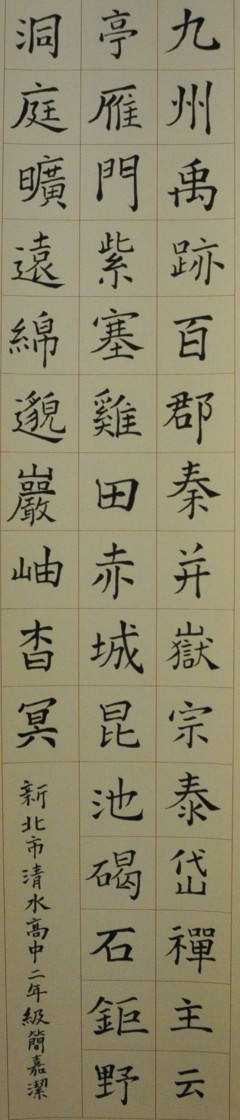 九州禹跡百郡秦并嶽宗泰岱禪主云
亭雁門紫塞雞田赤城昆池碣石鉅野
洞庭曠遠綿邈巖岫杳冥
新北市清水高中二年級簡嘉潔